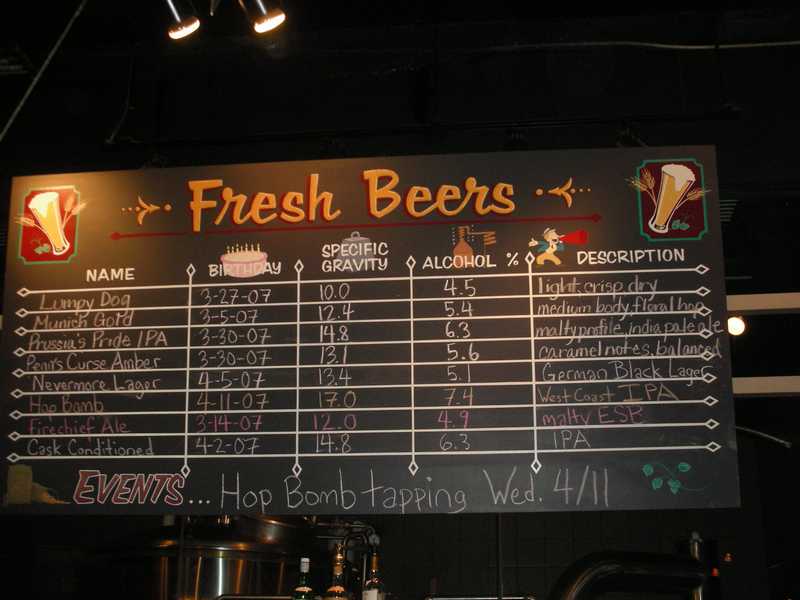 Fresh Beers
NAME BIRTHDAY SPECIFIC GRAVITY ALCOHOL % DESCRIPTION
Lumpy Dog 3-27-07 10.0 4.5 light, crisp, dry
Munich Gold 3-5-07 12.4 5.4 medium body, floral hop
Prussia's Pride IPA 3-30-07 14.8 6.3 malty profile, india pale ale
Penn's Curse Amber 3-30-07 13.1 5.6 caramel notes, balanced
Nevermore Lager 4-5-07 13.4 5.1 German Black Lager
Hop Bomb 4-11-07 17.0 7.4 West Coast IPA
Firechief Ale 3-14-07 12.0 4.9 malty ESB
Cask Conditioned 4-2-07 14.8 6.3 IPA
EVENTS... Hop Bomb tapping Wed. 4/11